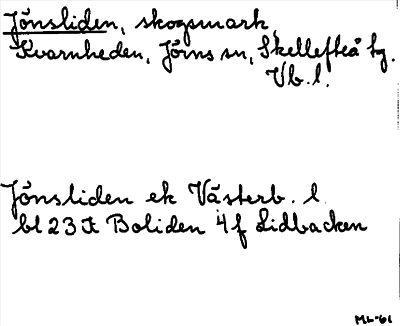 Jönsliden, skogsmark,
Kvarnheden, Jörns sn, Skellefteå tg.
Vb. l.
Jönsliden ek Västerb. l.
bl 23 K Boliden 4 f Lidbacken
ML-61